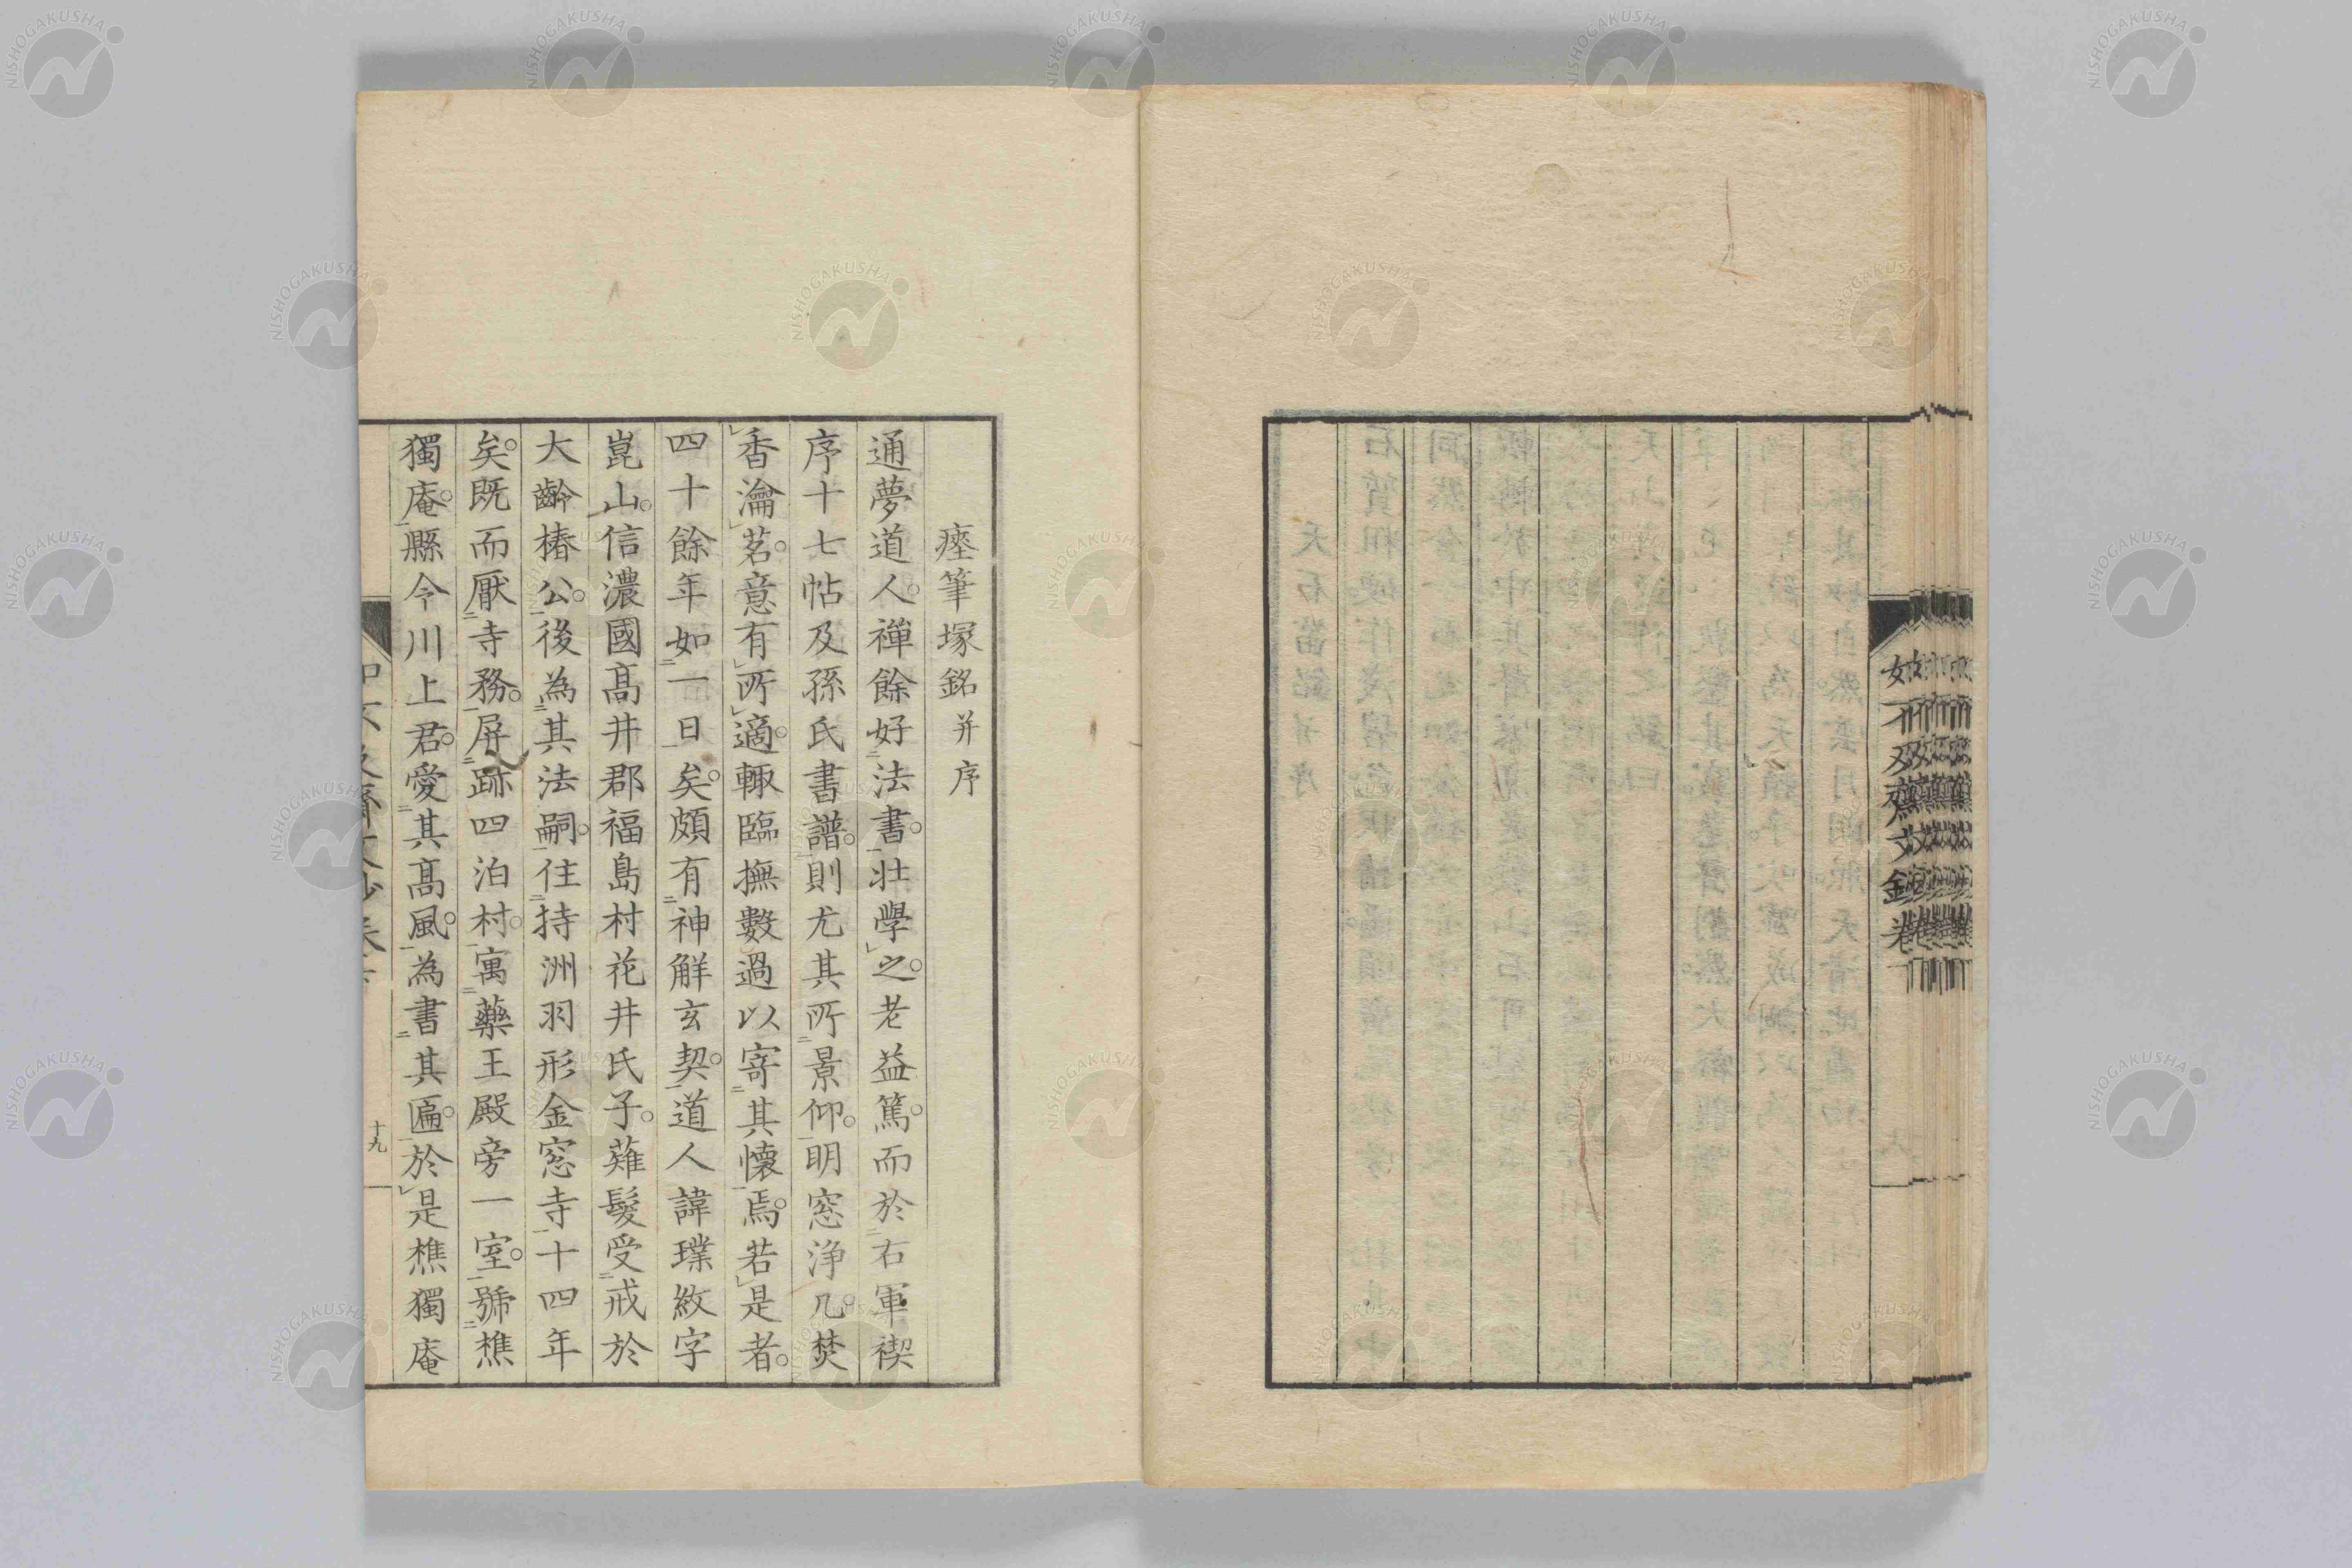 瘞筆塚銘并序
通夢道人。禪餘好法書。壯學之。老益篤。而於右軍禊
序十七帖及孫氏書譜。則尤其所景仰。明窓浄几。焚
香瀹茗。意有所適。輙臨撫數過以寄其懷焉。若是者。
四十餘年如一日矣。頗有神解玄契。道人諱璞紋字
崑山。信濃國髙井郡福島村花井氏子。薙髮受戒於
大齡椿公。後為其法嗣。住持洲羽形金窓寺十四年
矣。既而厭寺務。屏跡四泊村。寓藥王殿旁一室。號樵
獨庵。縣令川上君。愛其髙風。為書其匾。於是樵獨庵
十九
NISHOGAKUSHA